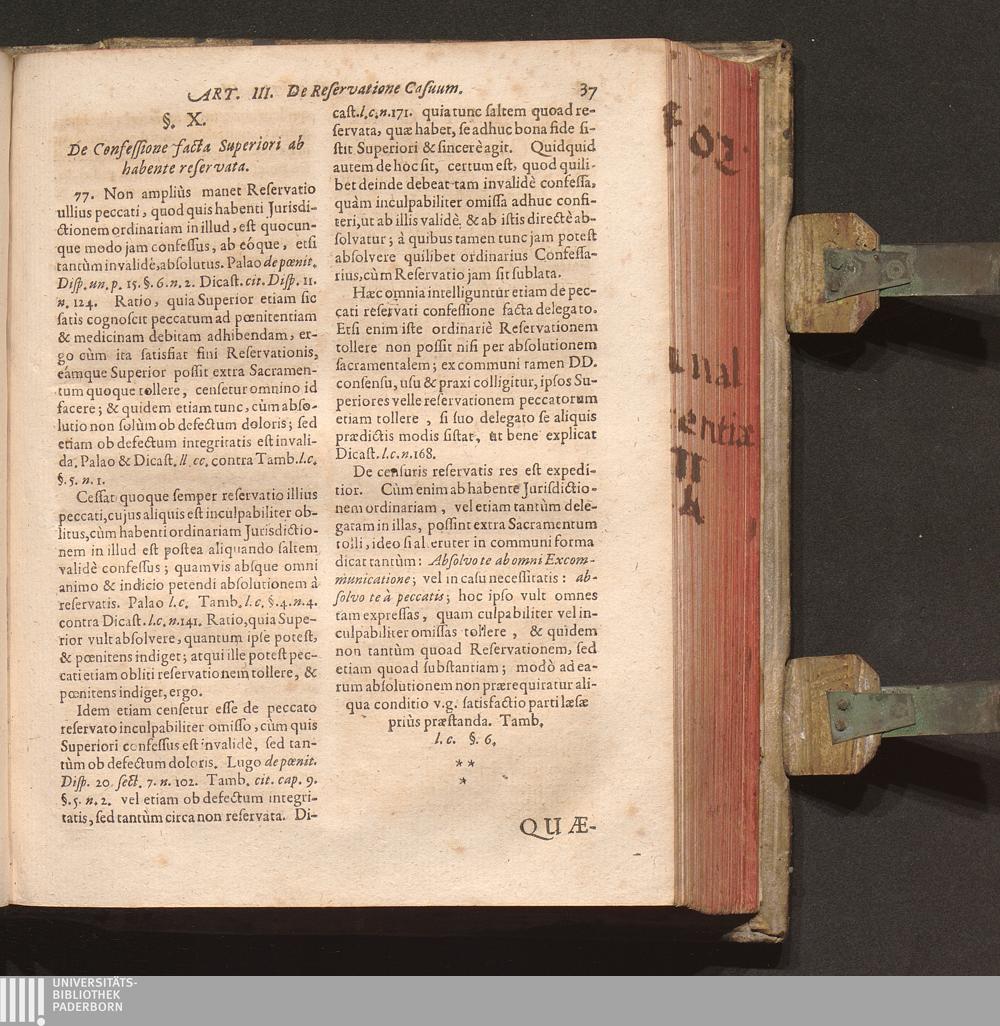 ART. III. De Reſervatione Caſuum. 37
§. X.
De Confeſſione facta Superiori ab
habente reſervata.
77. Non ampliùs manet Reſervatio
ullius peccati, quod quis habenti Jurisdi-
ctionem ordinariam in illud, eſt quocun-
que modo jam confeſſus, ab eóque, etſi
tantùm invalidè, abſolutus. Palao de pœnit.
Diſp. un. p. 15. §. 6. n. 2. Dicaſt. cit. Diſp. 11.
n. 124. Ratio, quia Superior etiam ſic
ſatis cognoſcit peccatum ad pœnitentiam
& medicinam debitam adhibendam, er-
go cùm ita ſatisfiat fini Reſervationis,
eámque Superior poſſit extra Sacramen-
tum quoque tollere, cenſetur omnino id
facere; & quidem etiam tunc, cùm abſo-
lutio non ſolùm ob defectum doloris; ſed
etiam ob defectum integritatis eſt invali-
da. Palao & Dicaſt. ll cc. contra Tamb. l.c.
§. 5. n. 1.
Ceſſat quoque ſemper reſervatio illius
peccati, cujus aliquis eſt inculpabiliter ob-
litus, cùm habenti ordinariam Jurisdictio-
nem in illud eſt poſtea aliquando ſaltem
validè confeſſus; quamvis absque omni
animo & indicio petendi abſolutionem à
reſervatis. Palao l.c. Tamb. l.c. §. 4. n. 4.
contra Dicaſt. l.c. n. 141. Ratio, quia Supe-
rior vult abſolvere, quantum ipſe poteſt,
& pœnitens indiget; atqui ille poteſt pec-
cati etiam obliti reſervationem tollere, &
pœnitens indiget, ergo.
Idem etiam cenſetur eſſe de peccato
reſervato inculpabiliter omiſſo, cùm quis
Superiori confeſſus eſt invalidè, ſed tan-
tùm ob defectum doloris. Lugo de pœnit.
Diſp. 20. ſect. 7. n. 102. Tamb. cit. cap. 9.
§. 5. n. 2. vel etiam ob defectum integri-
tatis, ſed tantùm circa non reſervata. Di-
caſt. l.c. n. 171. quia tunc ſaltem quoad re-
ſervata, quæ habet, ſe adhuc bona fide ſi-
ſtit Superiori & ſincerè agit. Quidquid
autem de hoc ſit, certum eſt, quod quili-
bet deinde debeat tam invalidè confeſſa,
quàm inculpabiliter omiſſa adhuc confi-
teri, ut ab illis validè, & ab iſtis directè ab-
ſolvatur; à quibus tamen tunc jam poteſt
abſolvere quilibet ordinarius Confeſſa-
rius, cùm Reſervatio jam ſit ſublata.
Hæc omnia intelliguntur etiam de pec-
cati reſervati confeſſione facta delegato.
Etſi enim iſte ordinariè Reſervationem
tollere non poſſit niſi per abſolutionem
ſacramentalem; ex communi tamen DD.
conſenſu, uſu & praxi colligitur, ipſos Su-
periores velle reſervationem peccatorum
etiam tollere, ſi ſuo delegato ſe aliquis
prædictis modis ſiſtat, ut bene explicat
Dicaſt. l.c. n. 168.
De cenſuris reſervatis res eſt expedi-
tior. Cùm enim ab habente Jurisdictio-
nem ordinariam, vel etiam tantùm dele-
gatam in illas, poſſint extra Sacramentum
tolli, ideo ſi alteruter in communi forma
dicat tantùm: Abſolvo te ab omni Excom-
municatione; vel in caſu neceſſitatis: ab-
ſolvo te à peccatis; hoc ipſo vult omnes
tam expreſſas, quam culpabiliter vel in-
culpabiliter omiſſas tollere, & quidem
non tantùm quoad Reſervationem, ſed
etiam quoad ſubſtantiam; modò ad ea-
rum abſolutionem non prærequiratur ali-
qua conditio v.g. ſatisfactio parti læſæ
priùs præſtanda. Tamb.
l. c. §. 6.
**
*
QUÆ-
unal
entiæ
II
A
UNIVERSITÄTS-
BIBLIOTHEK
PADERBORN